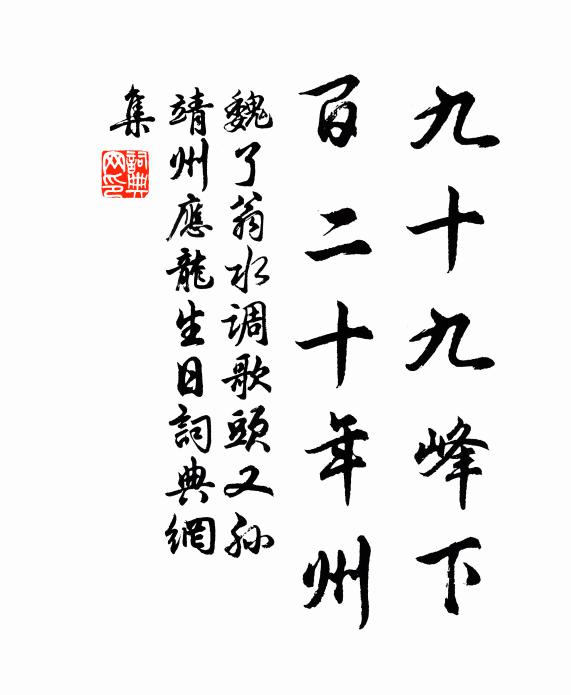 九十九峰下
百二十年州
魏了翁水调歌頭又孙
靖州應龍生日詞典網
集
詞典
网印